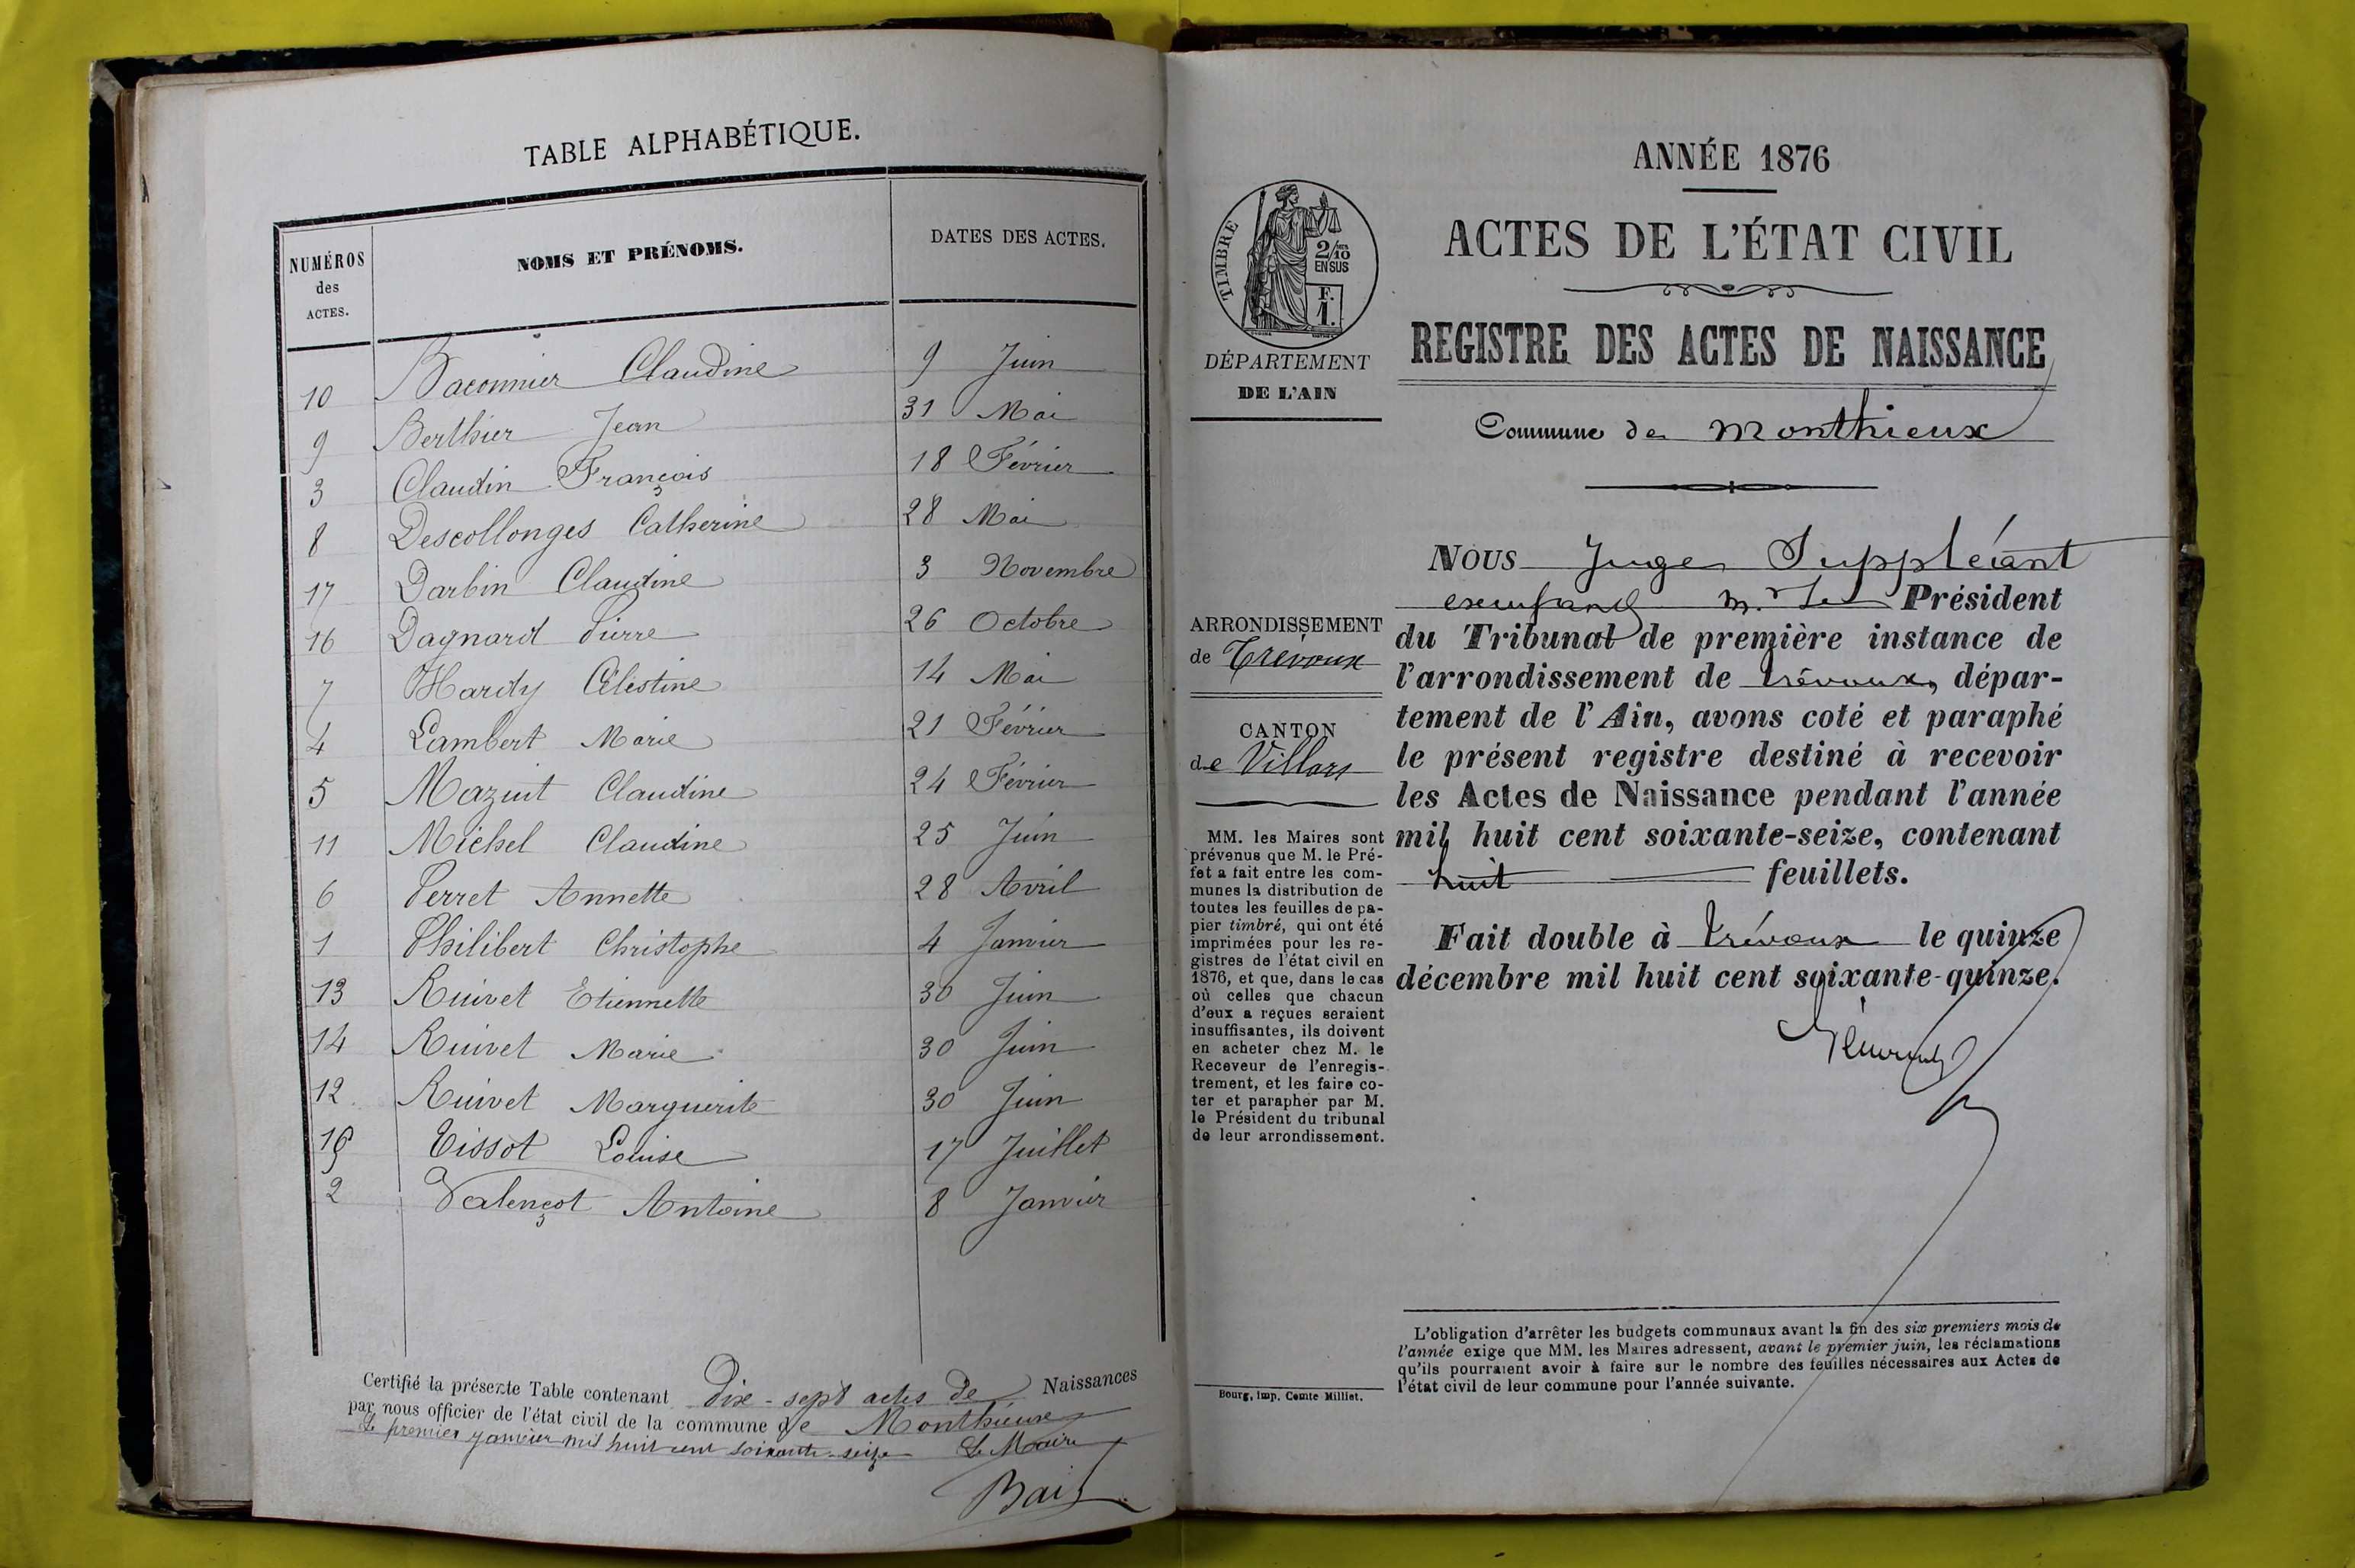 TABLE ALPHABÉTIQUE.
NUMÉROS des ACTES. NOMS ET PRÉNOMS. DATES DES ACTES.
10 Baconnier Claudine 9 Juin
9 Berthier Jean 31 Mai
3 Claudin François 18 Février
8 Descollonges Catherine 28 Mai
17 Darbin Claudine 3 Novembre
16 Dagnard Pierre 26 Octobre
7 Hardy Célestine 14 Mai
4 Lambert Marie 21 Février
5 Mazuit Claudine 24 Février
11 Michel Claudine 25 Juin
6 Perret Annette 28 Avril
1 Philibert Christophe 4 Janvier
13 Ruivet Etiennette 30 Juin
14 Ruivet Marie 30 Juin
12 Ruivet Marguerite 30 Juin
15 Tissot Louise 17 Juillet
2 Valençot Antoine 8 Janvier
Certifié la présente Table contenant dix-sept actes de Naissances
par nous officier de l'état civil de la commune de Monthieux
Le premier janvier mil huit cent soixante-seize Le Maire
ANNÉE 1876
ACTES DE L'ÉTAT CIVIL
REGISTRE DES ACTES DE NAISSANCE
Commune de Monthieux
TIMBRE
2/10
EN SUS
F.
1.
DÉPARTEMENT
DE L'AIN
ARRONDISSEMENT
de Trevoux
CANTON
de Villars
MM. les Maires sont
prévenus que M. le Pré-
fet a fait entre les com-
munes la distribution de
toutes les feuilles de pa-
pier timbré, qui ont été
imprimées pour les re-
gistres de l'état civil en
1876, et que, dans le cas
où celles que chacun
d'eux a reçues seraient
insuffisantes, ils doivent
en acheter chez M. le
Receveur de l'enregis-
trement, et les faire co-
ter et parapher par M.
le Président du tribunal
de leur arrondissement.
Bourg, imp. Comte Milliet.
NOUS Juge Suppléant
M. Le Président
du Tribunal de première instance de
l'arrondissement de Trévoux, dépar-
tement de l'Ain, avons coté et paraphé
le présent registre destiné à recevoir
les Actes de Naissance pendant l'année
mil huit cent soixante-seize, contenant
huit feuillets.
Fait double à Trévoux le quinze
décembre mil huit cent soixante-quinze.
L'obligation d'arrêter les budgets communaux avant la fin des six premiers mois de
l'année exige que MM. les Maires adressent, avant le premier juin, les réclamations
qu'ils pourraient avoir à faire sur le nombre des feuilles nécessaires aux Actes de
l'état civil de leur commune pour l'année suivante.